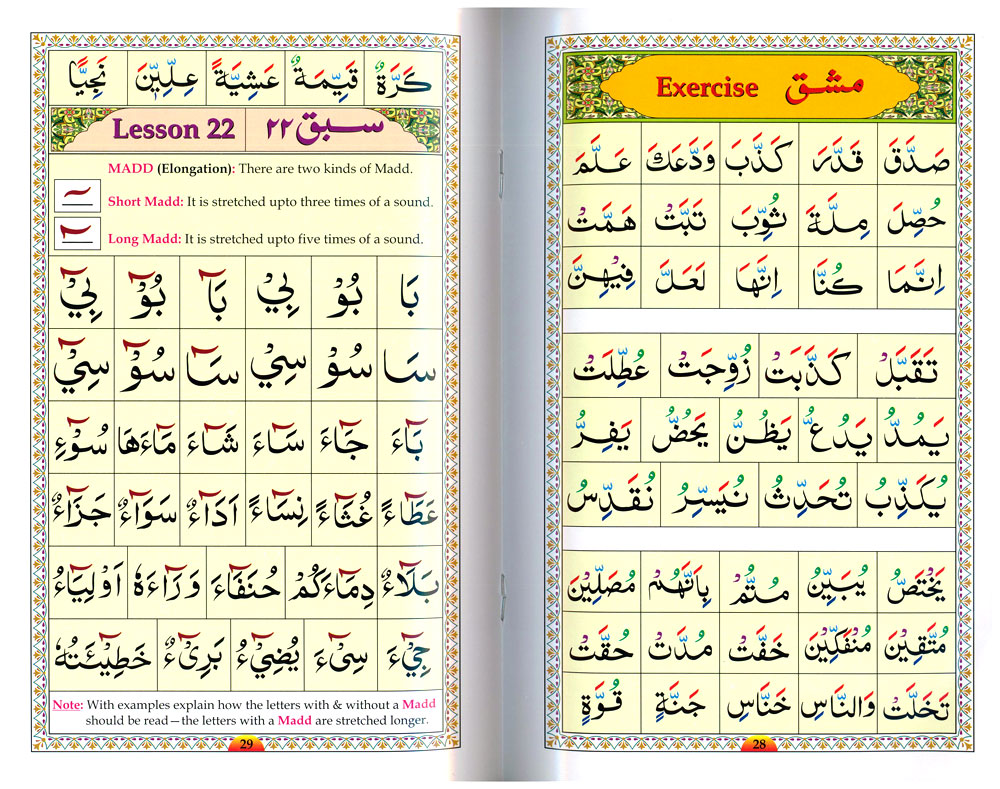 Exercise مشق
صَدَّقَ قَدَّرَ كَذَّبَ وَدَّعَكَ عَلَّمَ
حُصِّلَ مِلَّةَ ثُوِّبَ تَبَّتْ هَمَّتْ
اِنَّمَا كُنَّا اِنَّهَا لَعَلَّ فِيْهِنَّ
تَقَبَّلْ كَذَّبَتْ زُوِّجَتْ عُطِّلَتْ
يَمُدُّ يَدُعُّ يَظُنُّ يَحُضُّ يَفِرُّ
يُكَذِّبُ تُحَدِّثُ نُيَسِّرُ نُقَدِّسُ
يَخْتَصُّ يُبَيِّنُ مُتِمُّ بِاَنَّهُمْ مُصَلِّيْنَ
مُتَّقِيْنَ مُنْفَكِّيْنَ خَفَّتْ مُدَّتْ حُقَّتْ
تَخَلَّتْ وَالنَّاسِ خَنَّاسِ جَنَّةٍ قُوَّةٍ
28
كَرَّةٌ قَيِّمَةٌ عَشِيَّةً عِلِّيِّيْنَ نَجِيًّا
Lesson 22 سبق ۲۲
MADD (Elongation): There are two kinds of Madd.
Short Madd: It is stretched upto three times of a sound.
Long Madd: It is stretched upto five times of a sound.
بَا بُوْ بِيْ بَآ بُوْٓ بِيْٓ
سَا سُوْ سِيْ سَآ سُوْٓ سِيْٓ
بَآءَ جَآءَ سَآءَ شَآءَ مَآءَهَا سُوْٓءِ
عَطَآءً غُثَآءً نِسَآءً اَدَآءٌ سَوَآءٌ جَزَآءٌ
بَلَآءٌ دِمَآءَكُمْ حُنَفَآءَ وَرَآءَهٗ اَوْلِيَآءُ
جِيْٓءَ سِيْٓءَ يُضِيْٓءُ بَرِيْٓءٌ خَطِيْٓئَتُهٗ
Note: With examples explain how the letters with & without a Madd
should be read—the letters with a Madd are stretched longer.
29